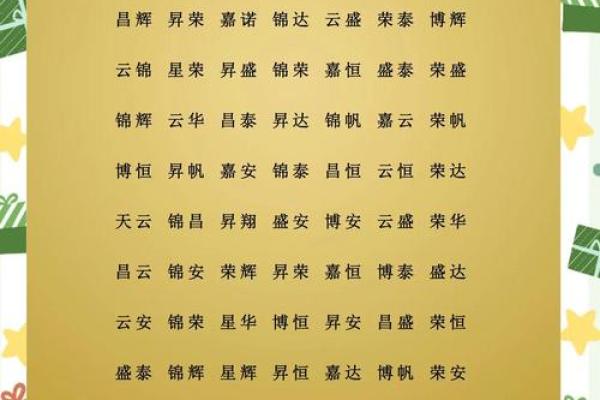 昌辉 昇荣 嘉诺 锦达 云盛 荣泰 博辉
云锦 星荣 昇盛 锦荣 嘉恒 盛泰 荣盛
锦辉 云华 昌泰 昇达 锦帆 嘉云 荣帆
博恒 昇帆 嘉安 锦泰 昌恒 云恒 荣达
天云 锦昌 昇翔 盛安 博安 云盛 荣华
昌云 锦安 荣辉 昇荣 嘉恒 博泰 盛达
云安 锦荣 星华 博恒 昇安 昌盛 荣恒
盛泰 锦辉 星辉 昇恒 嘉达 博帆 荣安